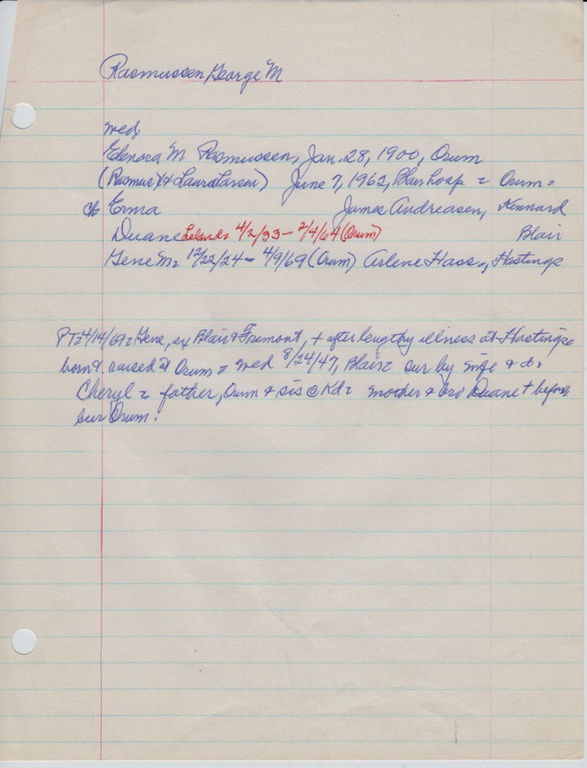 Rasmussen, George M
wed,
Elenora M Rasmussen, Jan. 28, 1900, Orum
(Rasmus X & Laura Larsen) June 7, 1962, Blair hosp = Orum =
ch Erma James Andreasen, Kennard
Duane Leland = 4/2/33 - 2/4/64 (Orum) Blair
Gene M = 12/22/24 - 4/9/69 (Orum) Arlene Hass =, Hastings
PT = 4/14/69 = Gene, ex Blair & Fremont, + after lengthy illness at Hastings
born & raised at Orum = wed 8/24/47, Blair = sur by wife & d =
Cheryl = father, Orum & sis @ Kd = mother & bro Duane + before
bur Orum.